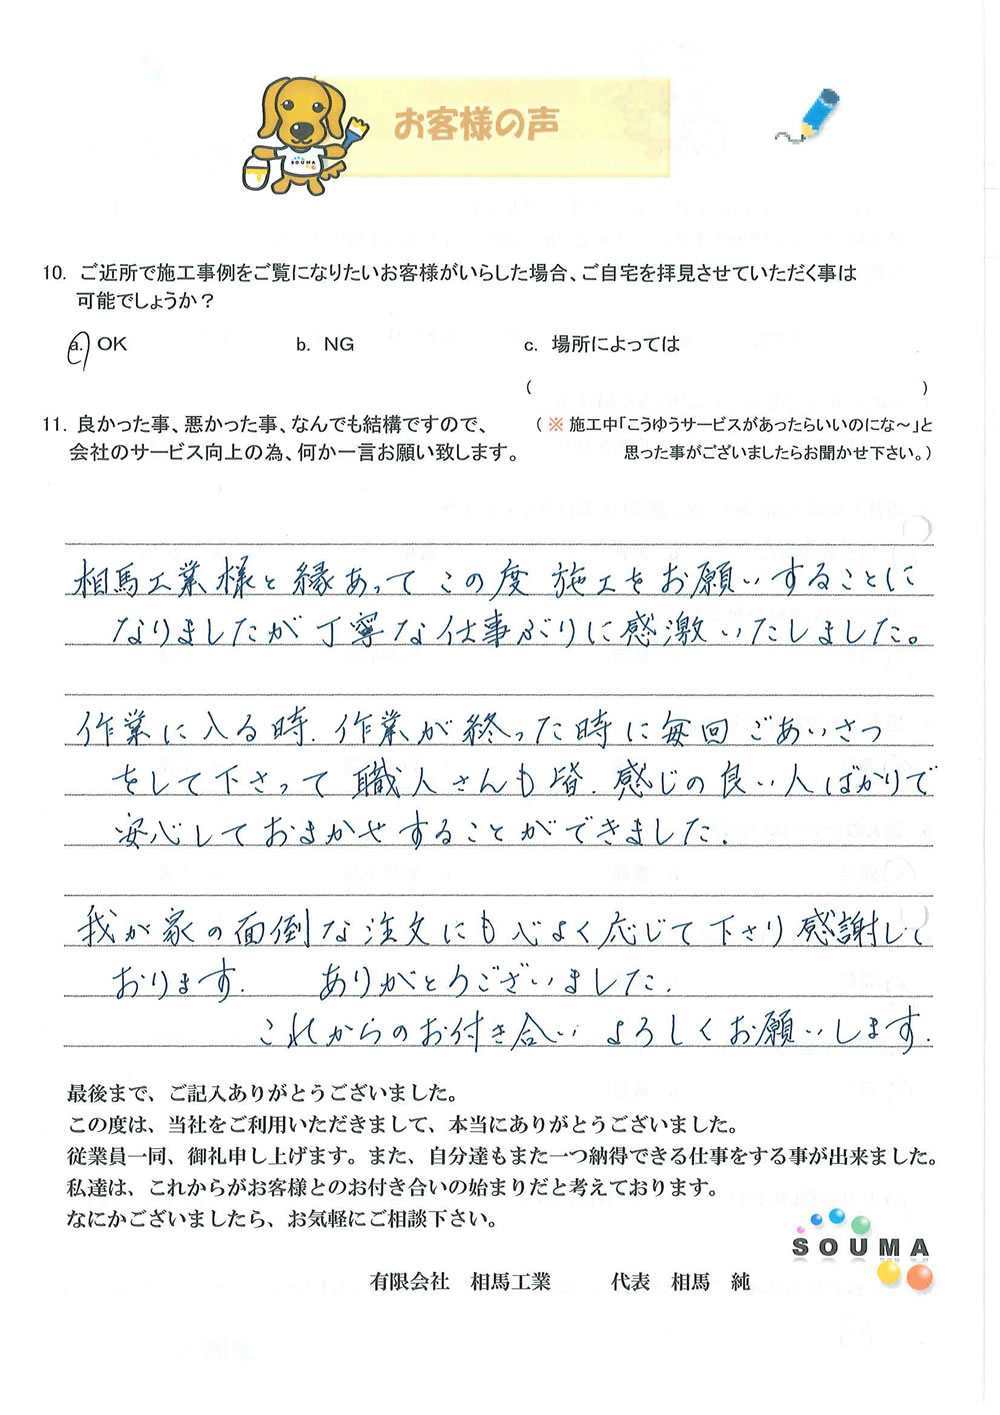 お客様の声
SOUMA
10. ご近所で施工事例をご覧になりたいお客様がいらした場合、ご自宅を拝見させていただく事は
可能でしょうか？
a. OK b. NG c. 場所によっては
( )
11. 良かった事、悪かった事、なんでも結構ですので、 (※ 施工中「こうゆうサービスがあったらいいのにな～」と
会社のサービス向上の為、何か一言お願い致します。 思った事がございましたらお聞かせ下さい。)
相馬工業様と縁あって この度 施工をお願いすることに
なりましたが丁寧な仕事ぶりに感激いたしました。
作業に入る時.作業が終った時に毎回ごあいさつ
をして下さって 職人さんも皆.感じの良い人ばかりで
安心しておまかせすることができました.
我が家の面倒な注文にも心よく応じて下さり感謝して
おります. ありがとうございました.
これからのお付き合い よろしくお願いします.
最後まで、ご記入ありがとうございました。
この度は、当社をご利用いただきまして、本当にありがとうございました。
従業員一同、御礼申し上げます。また、自分達もまた一つ納得できる仕事をする事が出来ました。
私達は、これからがお客様とのお付き合いの始まりだと考えております。
なにかございましたら、お気軽にご相談下さい。
SOUMA
有限会社 相馬工業 代表 相馬 純